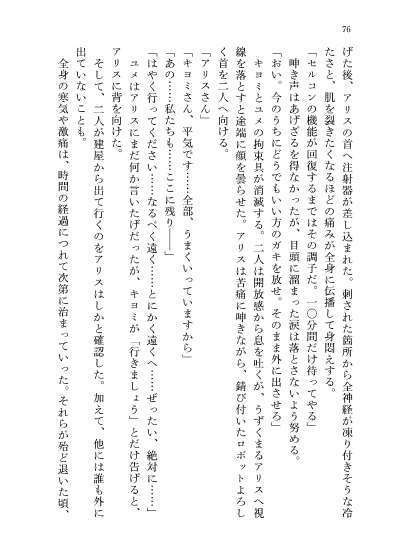 76
げた後、アリスの首へ注射器が差し込まれた。刺された箇所から全神経が凍り付きそうな冷
たさと、肌を裂きたくなるほどの痛みが全身に伝播して身悶えする。
「セルコンの機能が回復するまではその調子だ。一〇分間だけ待ってやる」
呻き声はあげざるを得なかったが、目頭に溜まった涙は落とさないよう努める。
「おい。今のうちにどうでもいい方のガキを放せ。そのまま外に出させろ」
キヨミとユメの拘束具が消滅する。二人は開放感から息を吐くが、うずくまるアリスへ視
線を落とすと途端に顔を曇らせた。アリスは苦痛に呻きながら、錆び付いたロボットよろし
く首を二人へ向ける。
「アリスさん」
「キヨミさん、平気です……全部、うまくいっていますから」
「あの……私たちも……ここに残り――」
「はやく行ってください……なるべく遠く……とにかく遠くへ……ぜったい、絶対に……」
ユメはアリスにまだ何か言いたげだったが、キヨミが「行きましょう」とだけ告げると、
アリスに背を向けた。
そして、二人が建屋から出て行くのをアリスはしかと確認した。加えて、他には誰も外に
出ていないことも。
全身の寒気や激痛は、時間の経過につれて次第に治まっていった。それらが殆ど退いた頃、